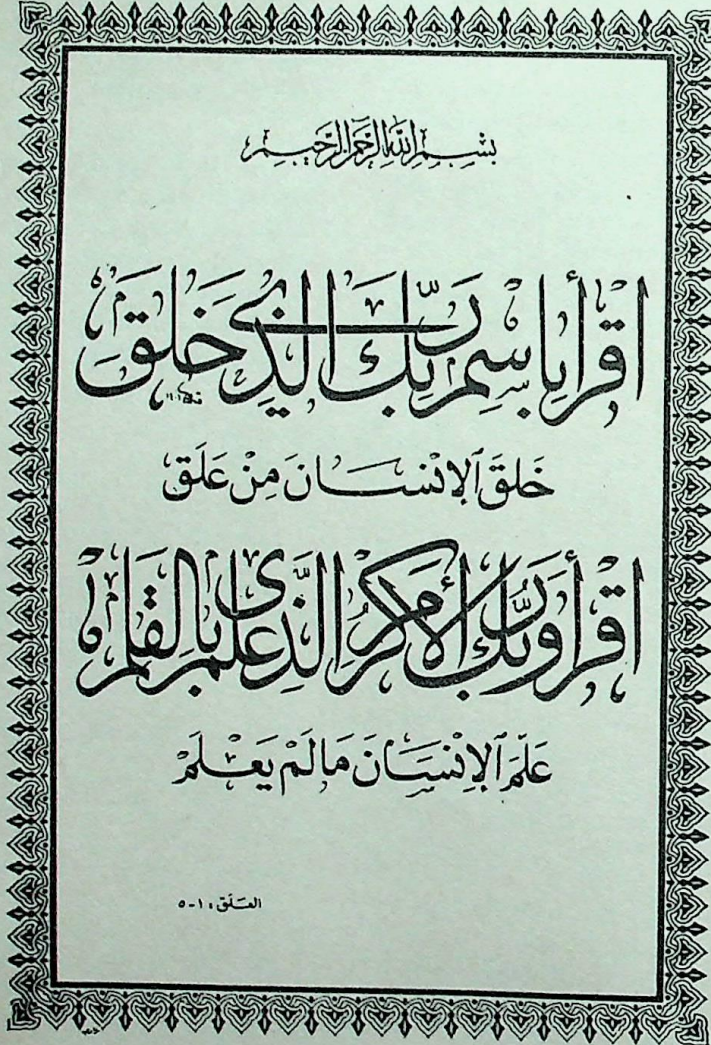 بِسْمِ اللَّهِ الرَّحْمَٰنِ الرَّحِيمِ
اقْرَأْ بِاسْمِ رَبِّكَ الَّذِي خَلَقَ
خَلَقَ الْإِنْسَانَ مِنْ عَلَقٍ
اقْرَأْ وَرَبُّكَ الْأَكْرَمُ الَّذِي عَلَّمَ بِالْقَلَمِ
عَلَّمَ الْإِنْسَانَ مَا لَمْ يَعْلَمْ
العَلَق : ١-٥